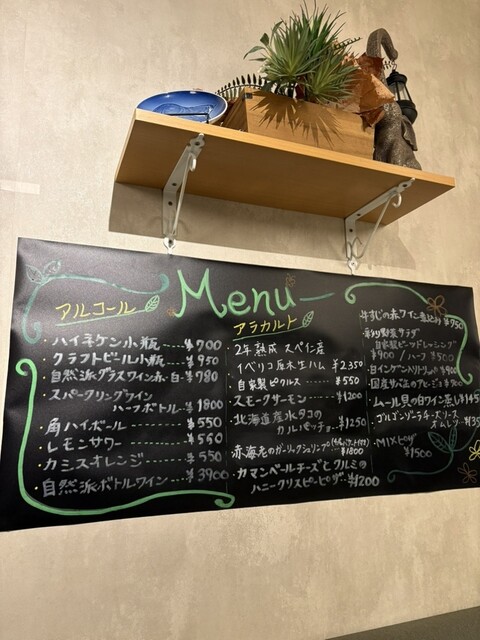 Menu
アルコール
・ハイネケン小瓶----¥700
・クラフトビール小瓶--¥950
・自然派グラスワイン赤・白-¥780
・スパークリングワイン
ハーフボトル-¥1800
・角ハイボール----¥550
・レモンサワー----¥560
・カシスオレンジ----¥550
・自然派ボトルワイン---¥3900
アラカルト
・2年熟成 スペイン産
イベリコ豚木生ハム ¥2,350
・自家製ピクルス----¥550
・スモークサーモン---¥1200
・北海道産水タコの
カルパッチョ--¥1250
・赤海老のガーリックシュリンプ
¥1800
・カマンベールチーズとクルミの
ハニークリスピーピザ-¥1200
・牛すじの赤ワイン煮込み ¥950
サラダ
自家製ビーフドレッシング
¥900/ハーフ¥500
国産
・ムール貝の白ワイン蒸し¥145
・ゴルゴンゾーラチーズソース
オムレツ
・MIXピザ
¥1500